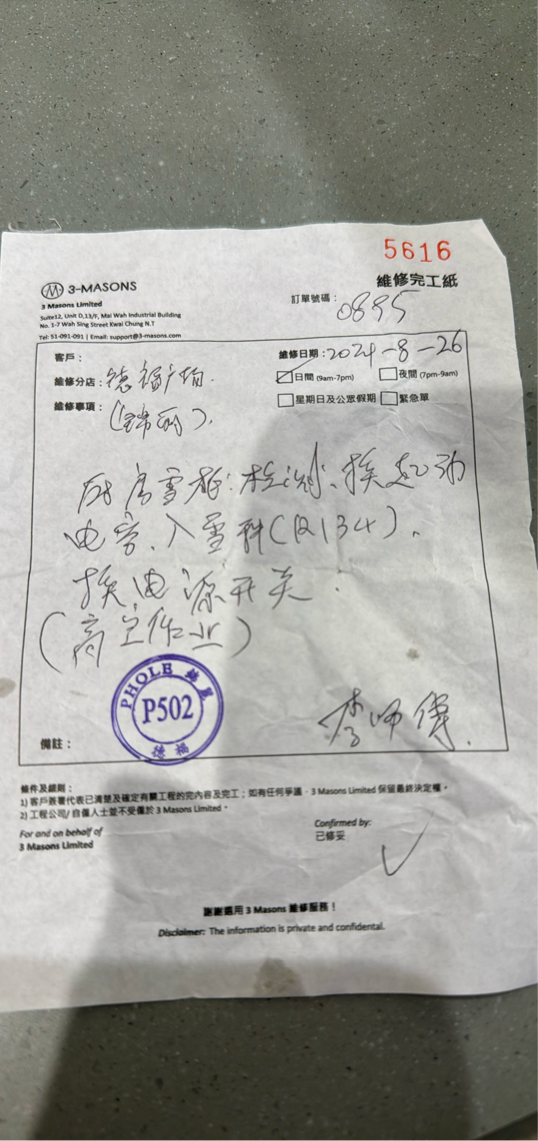 5616
3-MASONS
維修完工紙
3 Masons Limited
訂單號碼：0895
Suite12, Unit D,13/F, Mai Wah Industrial Building
No. 1-7 Wah Sing Street Kwai Chung N.T
Tel: 51-091-091 | Email: support@3-masons.com
客戶：
維修日期：2024-8-26
日間 (9am-7pm) 夜間 (7pm-9am)
維修分店：德福广場.
星期日及公眾假期 緊急單
維修事項：
厨房雪柜：检测、换起动
电容、入雪种(R134).
换电源开关.
(高空作业)
PHOLE
P502
德福
李师傅.
備註：
條件及細則：
1) 客戶簽署代表已清楚及確定有關工程的完內容及完工；如有任何爭議，3 Masons Limited 保留最終決定權。
2) 工程公司/自僱人士並不受僱於 3 Masons Limited。
For and on behalf of
3 Masons Limited
Confirmed by:
已修妥
謝謝選用 3 Masons 維修服務！
Disclaimer: The information is private and confidental.